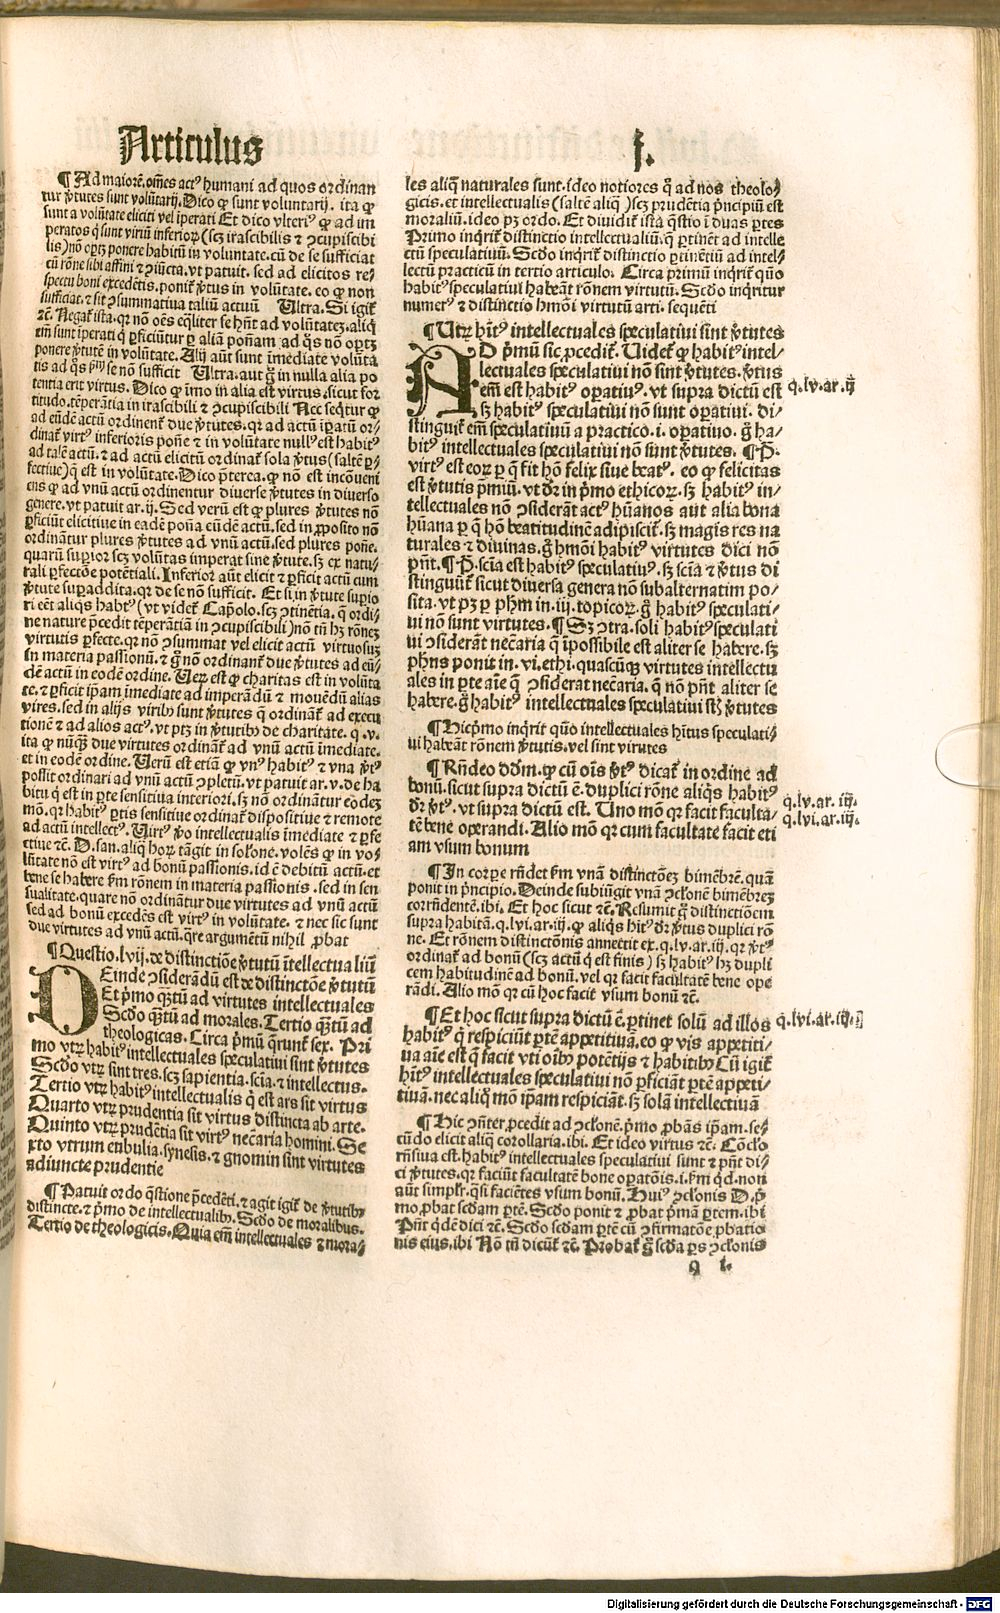 Articulus
I.
¶ Ad maiorē. oēs̄ actꝰ humani ad quos ordinan
tur v̓tutes sunt volūtarij. Dico ꝙ sunt voluntarij. ita ꝙ
sunt a volūtate eliciti vel īperati Et dico vlteriꝰ ꝙ ad im
peratos q̄ sunt viriū inferioꝝ (scꝫ irascibilis ⁊ ꝯcupiscibi
lis) nō oꝑtꝫ ponere habitū in voluntate. cū de se sufficiat
cū rōne sibi affini ⁊ ꝯiūcta. vt patuit. sed ad elicitos re⸗
spectu boni excedētis. poniť v̓tus in volūtate. eo ꝙ non
sufficiat. ⁊ sit ꝯsummativa taliū actuū Ultra. Si igiť
⁊c̄. Negať ista. qꝛ nō oēs eq̄liter se hn̄t ad volūtateꝫ. aliq̄
em̄ sunt īperati q̄ ꝑficiūtur ꝑ aliā poñam ad q̄s nō oꝑtꝫ
ponere v̓tutē in volūtate. Alij aūt sunt īmediate volūta
tis ad q̄s se nō sufficit Ultra. aut g̊ in nulla alia po
tentia erit virtus. Dico ꝙ īmo in alia est virtus. sicut for
titudo. tēperātia in irascibili ⁊ ꝯcupiscibili Nec seq̄tur ꝙ
ad eūdē actū ordinenť due v̓tutes. qꝛ ad actū īperatū or⸗
dinať virtꝰ inferioris poñe ⁊ in volūtate nullꝰ est habitꝰ
ad talē actū. ⁊ ad actū elicitū ordinať sola v̓tus (saltē ꝑ⸗
fectiue) q̄ est in volūtate. Dico p̄terea. ꝙ nō est incōueni
ens ꝙ ad vnū actū ordinentur diuerse v̓tutes in diuerso
genere. vt patuit ar. ij. Sed verū est ꝙ plures v̓tutes nō
ꝑficiūt elicitiue in eadē poña eūdē actū. sed in ꝓposito nō
ordinātur plures v̓tutes ad vnū actū. sed plures poñe.
quarū suꝑior scꝫ volūtas imperat sine v̓tute. sꝫ ex natu⸗
rali ꝑfectōe potētiali. Inferior aūt elicit ⁊ ꝑficit actū cum
v̓tute suꝑaddita. qꝛ de se nō sufficit. Et si in v̓tute suꝑio
ri eēt aliqs habꝰ (vt videť Cap̄olo. scꝫ ꝯtinētia. q̄ ordi⸗
ne nature p̄cedit tēperātiā in ꝯcupiscibili) nō tn̄ hꝫ rōneꝫ
virtutis ꝑfecte. qꝛ nō ꝯsummat vel elicit actū virtuosuꝫ
in materia passionū. ⁊ g̊ nō ordinanť due v̓tutes ad eū⸗
dē actū in eodē ordine. Ueꝝ est ꝙ charitas est in volūta
te. ⁊ ꝑficit ip̄am īmediate ad imperādū ⁊ mouēdū alias
vires. sed in alijs virib̓ sunt v̓tutes q̄ ordināť ad execu
tionē ⁊ ad alios actꝰ. vt ptꝫ in v̓tutib̓ de charitate. q. v.
ita ꝙ nūq̄ꝫ due virtutes ordināť ad vnū actū īmediate.
et in eodē ordine. Uerū est etiā ꝙ vnꝰ habitꝰ ⁊ vna v̓tꝰ
possit ordinari ad vnū actū ꝯpletū. vt patuit ar. v. de ha
bitu q̄ est in ꝑte sensitiua interiori. sꝫ nō ordināťur eodeꝫ
mō. qꝛ habitꝰ ꝑtis sensitiue ordināť dispositiue ⁊ remote
ad actū intellectꝰ. Uirtꝰ v̓o intellectualis īmediate ⁊ ꝑfe
ctiue ⁊c̄. D. san. aliq̄ hoꝝ tāgit in solōne. volēs ꝙ in vo⸗
lūtate nō est virtꝰ ad bonū passionis. id ē debitū actū. et
bene se habere ẜm rōnem in materia passionis. sed in sen
sualitate. quare nō ordināťur due virtutes ad vnū actū
sed ad bonū excedēs est virtꝰ in volūtate. ⁊ nec sic sunt
due virtutes ad vnū actū. q̄re argumētū nihil ꝓbat
¶ Questio. lvij. de distinctiōe v̓tutū ītellectualiū
DEinde ꝯsiderādū est de distinctōe v̓tutū
Et p̄mo q̄ꝫtū ad virtutes intellectuales
Scd̓o q̄ꝫtū ad morales. Tertio q̄ꝫtū ad
theologicas. Circa p̄mū q̄runť sex. Pri
mo vtꝝ habitꝰ intellectuales speculatiui sint v̓tutes
Scd̓o vtꝝ sint tres. scꝫ sapientia. scīa. ⁊ intellectus.
Tertio vtꝝ habitꝰ intellectualis q̄ est ars sit virtus
Quarto vtꝝ prudentia sit virtus distincta ab arte.
Quinto vtꝝ prudētia sit virtꝰ necaria homini. Se
xto vtrum eubulia. synesis. ⁊ gnomin sint virtutes
adiuncte prudentie
¶ Patuit ordo q̄stione p̄cedēti. ⁊ agit igiť de v̓tutib̓
distincte. ⁊ p̄mo de intellectualib̓. Scd̓o de moralibus.
Tertio de theologicis. Quia em̄ intellectuales ⁊ mora⸗
les aliq̄ naturales sunt. ideo notiores q̄ ad nos theolo⸗
gicis. et intellectualis (saltē aliq̄) scꝫ prudētia p̄ncipiū est
moraliū. ideo pꝫ ordo. Et diuidiť ista q̄stio ī duas ꝑtes
Primo inq̄riť distinctio intellectualiū. q̄ ꝑtinēt ad intelle
ctū speculatiuū. Scd̓o inq̄riť distinctio ꝑtinētiū ad intel⸗
lectū practicū in tertio articulo. Circa primū inq̄riť quō
habitꝰ speculatiui habeāt rōnem virtutū. Scd̓o inq̄ritur
numerꝰ ⁊ distinctio hmōi virtutū arti. sequēti
¶ Utꝝ hītꝰ intellectuales speculatiui sint v̓tutes
AD p̄mū sic ꝓcediť. Uideť ꝙ habitꝰ intel⸗
lectuales speculatiui nō sint v̓tutes. v̓tus
em̄ est habitꝰ oꝑatiuꝰ. vt supra dictū est
sꝫ habitꝰ speculatiui nō sunt oꝑatiui. di⸗
stinguiť em̄ speculatiuū a practico. i. oꝑatiuo. g̊ ha⸗
bitꝰ intellectuales speculatiui nō sunt v̓tutes. ¶ P.
virtꝰ est eoꝝ ꝑ q̄ fit hō felix siue beatꝰ. eo ꝙ felicitas
est v̓tutis p̄miū. vt dr̄ in p̄mo ethicoꝝ. sꝫ habitꝰ in⸗
tellectuales nō ꝯsiderāt actꝰ hūanos aut alia bona
hūana ꝑ q̄ hō beatitudinē adipisciť. sꝫ magis res na
turales ⁊ diuinas. g̊ hmōi habitꝰ virtutes dici nō
pn̄t. ¶ P. scīa est habitꝰ speculatiuꝰ. sꝫ scīa ⁊ v̓tus di
stinguūť sicut diuersa genera nō subalternatim po⸗
sita. vt pꝫ ꝑ ph̄m in. iij. topicoꝝ. g̊ habitꝰ speculati⸗
ui nō sunt virtutes. ¶ Sꝫ ꝯtra. soli habitꝰ speculati
ui ꝯsiderāt necāria q̄ īpossibile est aliter se habere. sꝫ
ph̄us ponit in. vi. ethi. quascūqꝫ virtutes intellectu
ales in ꝑte aīe q̄ ꝯsiderat necāria. q̄ nō pn̄t aliter se
habere. g̊ habitꝰ intellectuales speculatiui sūt v̓tutes
¶ Hic p̄mo inq̄rit quō intellectuales hītus speculati⸗
ui habeāt rōnem v̓tutis. vel sint virutes
¶ Rn̄deo dd̓m. ꝙ cū oīs v̓tꝰ dicať in ordine ad
bonū. sicut supra dictū ē. duplici rōne aliq̄s habitꝰ
dr̄ v̓tꝰ. vt supra dictū est. Uno mō qꝛ facit faculta⸗
tē bene operandi. Alio mō qꝛ cum facultate facit eti
am vsum bonum
¶ In corꝑe rn̄det ẜm vnā distinctōeꝫ bimēbrē. quā
ponit in p̄ncipio. Deinde subiūgit vnā ꝯclōnē bimēbreꝫ
corrn̄dentē. ibi. Et hoc sicut ⁊c̄. Resumit g̊ distinctiōem
supra habitā. q. lvi. ar. iij. ꝙ aliq̄s hītꝰ dr̄ v̓tus duplici rō
ne. Et rōnem distinctōnis annectit ex. q. lv. ar. iij. qꝛ v̓tꝰ
ordināť ad bonū (scꝫ actū q̄ est finis) sꝫ habitꝰ hꝫ dupli
cem habitudinē ad bonū. vel qꝛ facit facultatē bene ope
rādi. Alio mō qꝛ cū hoc facit vsum bonū ⁊c̄.
¶ Et hoc sicut supra dictū ē. ꝑtinet solū ad illos
habitꝰ q̄ respiciūt ꝑtē appetitiuā. eo ꝙ vis appetiti⸗
ua aīe est q̄ facit vti oīb̓ potētijs ⁊ habitib̓ Cū igiť
hītꝰ intellectuales speculatiui nō ꝑficiāt ꝑtē appeti⸗
tiuā. nec aliq̄ mō ip̄am respiciāt. sꝫ solā intellectiuā
¶ Hic ꝯn̄ter ꝓcedit ad ꝯclōnē. p̄mo ꝓbās ip̄am. se⸗
cūdo elicit aliq̄ corollaria. ibi. Et ideo virtus ⁊c̄. Cōclō
rn̄siua est. habitꝰ intellectuales speculatiui sunt ⁊ pn̄t di⸗
ci v̓tutes. qꝛ faciūt facultatē bone oꝑatōis. i. ẜm q̄d. non
aūt simplr̄. q̄si faciētes vsum bonū. Huiꝰ ꝯclōnis D. p̄
mo. ꝓbat scd̓am ꝑtē. Scd̓o ponit ⁊ ꝓbat p̄mā ꝑtem. ibi
Pn̄t q̄dē dici ⁊c̄. Scd̓o scd̓am ꝑtē cū ꝯfirmatōe ꝓbatio
nis eius. ibi Nō tn̄ dicūť ⁊c̄. Probať g̊ scd̓a ꝑs ꝯclōnis
q. lv. ar. ij
q. lv. ar. iij.
q. lvi. ar. iij.
q. lvi. ar. iij.
q i.
Digitalisierung gefördert durch die Deutsche Forschungsgemeinschaft - DFG